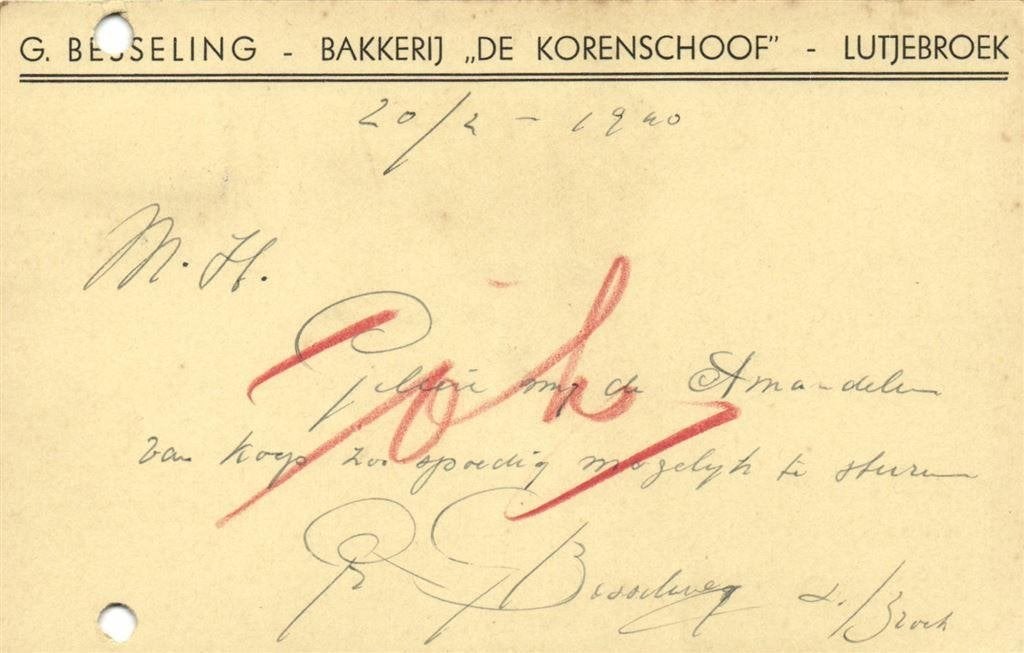 G. BESSELING - BAKKERIJ „DE KORENSCHOOF" - LUTJEBROEK
20/2 - 1940
M. H.
Gelieve mij de Amandelen
van koop zoo spoedig mogelijk te sturen
G Besseling L. Broek